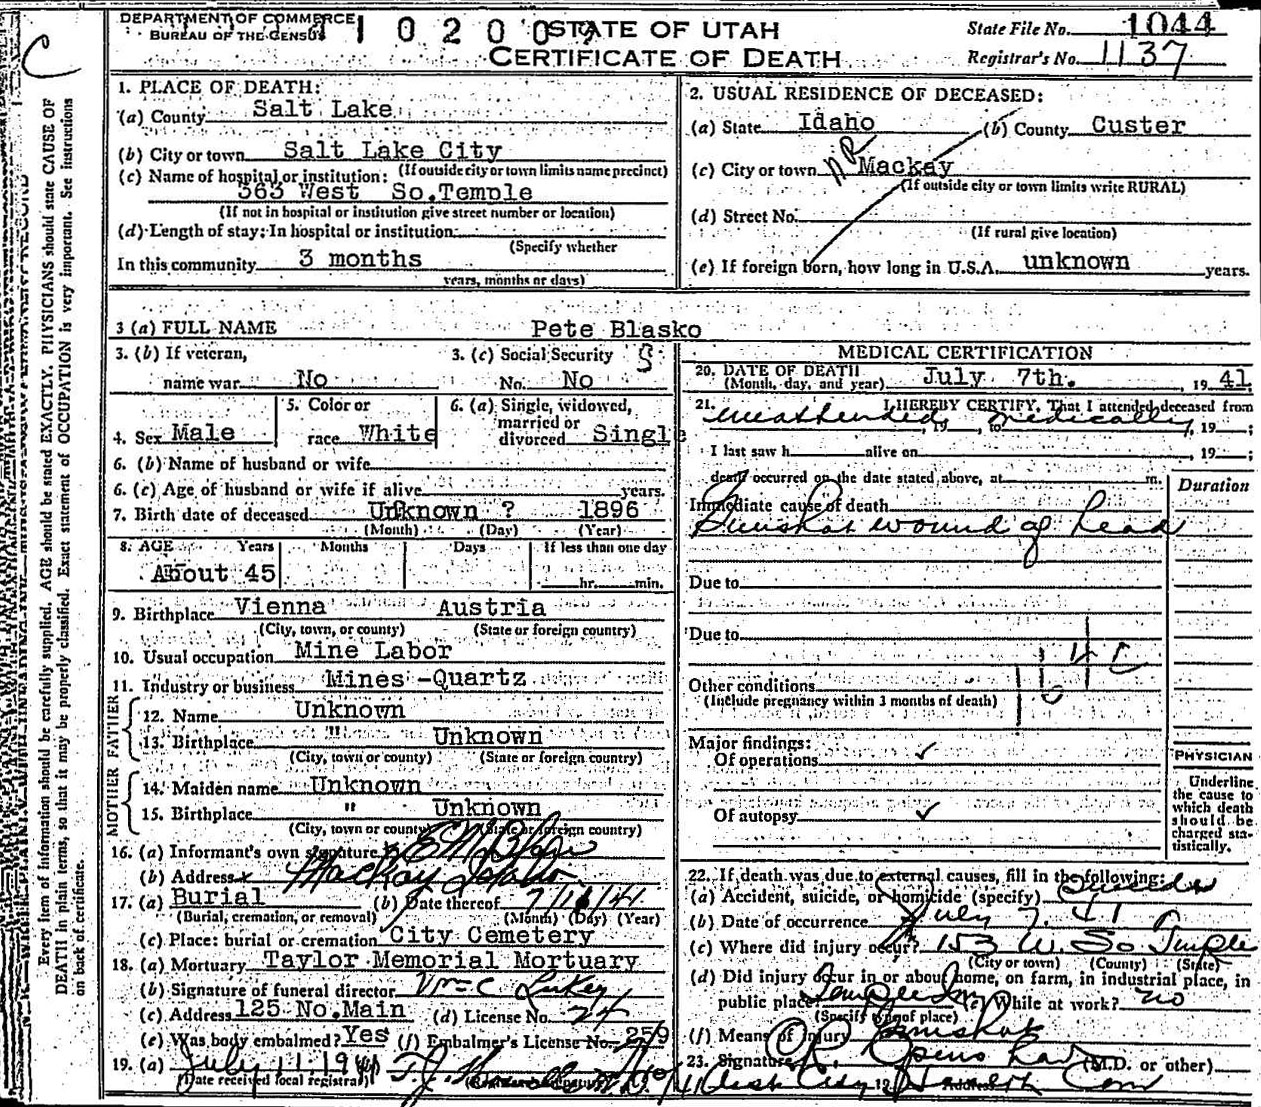 DEPARTMENT OF COMMERCE
BUREAU OF THE CENSUS
STATE OF UTAH
CERTIFICATE OF DEATH
State File No. 1044
Registrar's No. 1137
Every item of information should be carefully supplied. AGE should be stated EXACTLY. PHYSICIANS should state CAUSE OF
DEATH in plain terms, so that it may be properly classified. Exact statement of OCCUPATION is very important. See instructions
on back of certificate.
1. PLACE OF DEATH:
(a) County Salt Lake
(b) City or town Salt Lake City
(If outside city or town limits name precinct)
(c) Name of hospital or institution:
363 West So.Temple
(If not in hospital or institution give street number or location)
(d) Length of stay: In hospital or institution
(Specify whether
In this community 3 months
years, months or days)
2. USUAL RESIDENCE OF DECEASED:
(a) State Idaho (b) County Custer
(c) City or town NR Mackay
(If outside city or town limits write RURAL)
(d) Street No.
(If rural give location)
(e) If foreign born, how long in U.S.A. unknown years.
3 (a) FULL NAME Pete Blasko
3. (b) If veteran,
name war No
3. (c) Social Security
No. No
4. Sex Male
5. Color or
race White
6. (a) Single, widowed,
married or
divorced Single
6. (b) Name of husband or wife
6. (c) Age of husband or wife if alive years.
7. Birth date of deceased Unknown ? 1896
(Month) (Day) (Year)
8. AGE Years Months Days If less than one day
About 45 hr. min.
9. Birthplace Vienna Austria
(City, town, or county) (State or foreign country)
10. Usual occupation Mine Labor
11. Industry or business Mines -Quartz
FATHER
12. Name Unknown
13. Birthplace " Unknown
(City, town or county) (State or foreign country)
MOTHER
14. Maiden name Unknown
15. Birthplace " Unknown
(City, town or county) (State or foreign country)
16. (a) Informant's own signature
(b) Address x Mackay Idaho
17. (a) Burial (b) Date thereof
(Burial, cremation, or removal) (Month) (Day) (Year)
(c) Place: burial or cremation City Cemetery
18. (a) Mortuary Taylor Memorial Mortuary
(b) Signature of funeral director
(c) Address 125 No.Main (d) License No. 24
(e) Was body embalmed? Yes (f) Embalmer's License No. 259
19. (a) July 11. 1941
(Date received local registrar)
MEDICAL CERTIFICATION
20. DATE OF DEATH
(Month, day, and year) July 7th. , 19 41
21. I HEREBY CERTIFY, That I attended deceased from
unattended , 19 , to medically , 19 ;
I last saw h alive on , 19 ;
death occurred on the date stated above, at m.
Duration
Immediate cause of death
Gunshot wound of head
Due to
Due to
164 C
Other conditions
(Include pregnancy within 3 months of death)
Major findings:
Of operations ✓
Of autopsy ✓
PHYSICIAN
Underline
the cause to
which death
should be
charged sta-
tistically.
22. If death was due to external causes, fill in the following:
(a) Accident, suicide, or homicide (specify) Suicide
(b) Date of occurrence July 7. 41
(c) Where did injury occur? 153 W. So Temple
(City or town) (County) (State)
(d) Did injury occur in or about home, on farm, in industrial place, in
public place? (e) While at work? no
(Specify type of place)
(f) Means of injury Gunshot
23. Signature (M.D. or other)
Address City Health Com